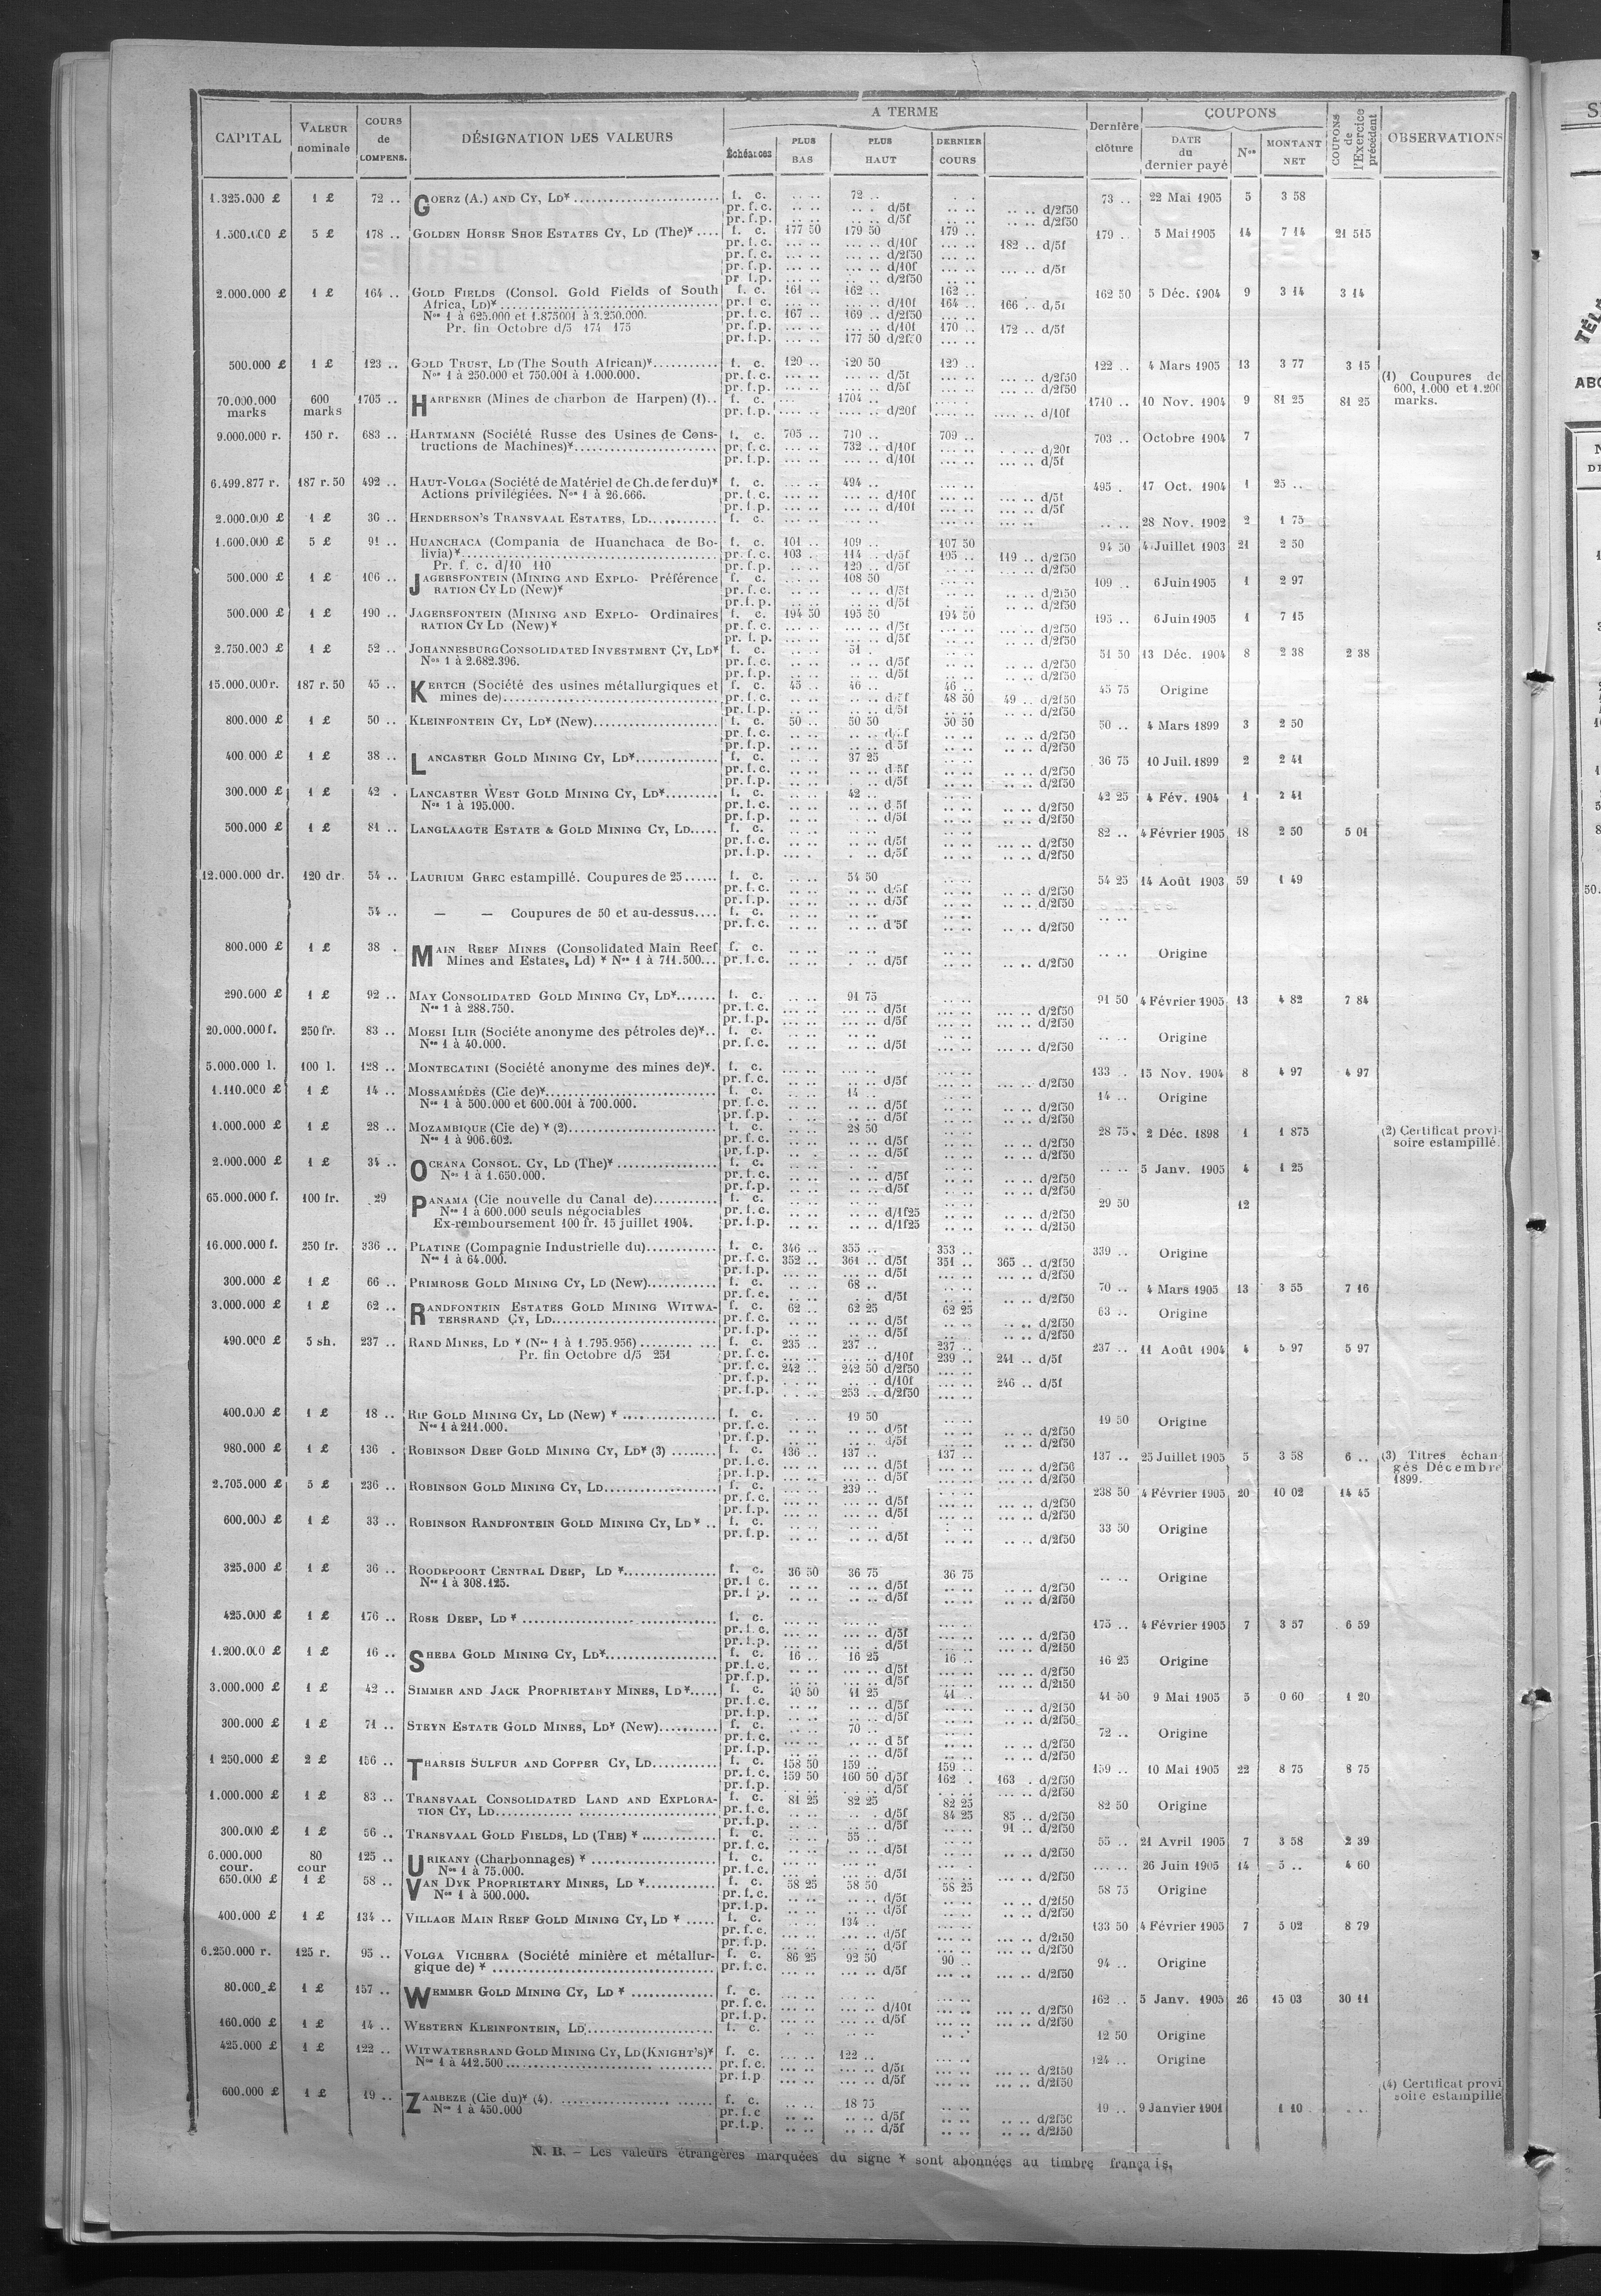 CAPITAL VALEUR nominale COURS de COMPENS. DÉSIGNATION DES VALEURS A TERME Échéances PLUS BAS PLUS HAUT DERNIER COURS Dernière clôture COUPONS DATE du dernier payé Nos MONTANT NET COUPONS de l'Exercice précédent OBSERVATIONS
1.325.000 £ 1 £ 72 .. GOERZ (A.) AND CY, LD* f. c. .. .. 72 .. .. .. 73 .. 22 Mai 1905 5 3 58
pr. f. c. .. .. .. . d/5f .. .. .. .. d/2f50
pr. f. p. .. .. .. .. d/5f .. .. .. .. d/2f50
1.500.000 £ 5 £ 178 .. GOLDEN HORSE SHOE ESTATES CY, LD (The)* f. c. 177 50 179 50 179 .. 179 .. 5 Mai 1905 14 7 14 21 515
pr. f. c. ... .. ... .. d/10f ... .. 182 .. d/5f
pr. f. c. ... .. ... .. d/2f50 ... ..
pr. f. p. ... .. ... .. d/10f ... .. ... .. d/5f
pr. f. p. ... .. ... .. d/2f50 ... ..
2.000.000 £ 1 £ 164 .. GOLD FIELDS (Consol. Gold Fields of South f. c. 161 .. 162 .. 162 .. 162 50 5 Déc. 1904 9 3 14 3 14
Africa, LD)* pr. f. c. ... .. ... .. d/10f 164 .. 166 .. d/5f
Nos 1 à 625.000 et 1.875001 à 3.250.000. pr. f. c. 167 .. 169 .. d/2f50 ... ..
Pr. fin Octobre d/5 174 175 pr. f. p. ... .. ... .. d/10f 170 .. 172 .. d/5f
pr. f. p. ... .. 177 50 d/2f50 ... ..
500.000 £ 1 £ 123 .. GOLD TRUST, LD (The South African)* f. c. 120 .. 120 50 120 .. 122 .. 4 Mars 1905 13 3 77 3 15
Nos 1 à 250.000 et 750.001 à 1.000.000. pr. f. c. ... .. ... .. d/5f ... .. ... .. d/2f50 (1) Coupures de
pr. f. p. ... .. ... .. d/5f ... .. ... .. d/2f50 600, 1.000 et 1.200
70.000.000 600 1705 .. HARPENER (Mines de charbon de Harpen) (1).. f. c. .... .. 1704 .. .... .. 1710 .. 10 Nov. 1904 9 81 25 81 25 marks.
marks marks pr. f. p. .... .. .... .. d/20f .... .. .... .. d/10f
9.000.000 r. 150 r. 683 .. HARTMANN (Société Russe des Usines de Cons- f. c. 705 .. 710 .. 709 .. 703 .. Octobre 1904 7
tructions de Machines)* pr. f. c. ... .. 732 .. d/10f ... .. ... .. d/20f
pr. f. p. ... .. ... .. d/10f ... .. ... .. d/5f
6.499.877 r. 187 r. 50 492 .. HAUT-VOLGA (Société de Matériel de Ch. de fer du)* f. c. ... .. 494 .. ... .. 495 . 17 Oct. 1904 1 25 ..
Actions privilégiées. Nos 1 à 26.666. pr. f. c. ... .. ... .. d/10f ... .. ... .. d/5f
pr. f. p. ... .. ... .. d/10f ... .. ... .. d/5f
2.000.000 £ 1 £ 36 .. HENDERSON'S TRANSVAAL ESTATES, LD f. c. .. .. .. .. .. .. .. .. 28 Nov. 1902 2 1 75
1.600.000 £ 5 £ 91 .. HUANCHACA (Compania de Huanchaca de Bo- f. c. 101 .. 109 .. 107 50 94 50 4 Juillet 1903 21 2 50
livia)* pr. f. c. 103 . 114 .. d/5f 105 .. 119 .. d/2f50
Pr. f. c. d/10 110 pr. f. p. .. .. 120 .. d/5f .. .. ... .. d/2f50
500.000 £ 1 £ 106 .. JAGERSFONTEIN (MINING AND EXPLO- Préférence f. c. .. .. 108 50 .. .. 109 .. 6 Juin 1905 1 2 97
RATION CY LD (New)* pr. f. c. .. .. .. .. d/5f .. .. ... .. d/2f50
pr. f. p. .. .. .. .. d/5f .. .. ... .. d/2f50
500.000 £ 1 £ 190 .. JAGERSFONTEIN (MINING AND EXPLO- Ordinaires f. c. 194 50 195 50 194 50 195 .. 6 Juin 1905 1 7 15
RATION CY LD (New)* pr. f. c. ... .. ... .. d/5f ... .. ... .. d/2f50
pr. f. p. ... .. ... .. d/5f ... .. ... .. d/2f50
2.750.000 £ 1 £ 52 .. JOHANNESBURG CONSOLIDATED INVESTMENT CY, LD* f. c. .. .. 51 . .. .. 51 50 13 Déc. 1904 8 2 38 2 38
Nos 1 à 2.682.396. pr. f. c. .. .. .. .. d/5f .. .. .. .. d/2f50
pr. f. p. .. .. .. .. d/5f .. .. .. .. d/2f50
15.000.000 r. 187 r. 50 45 .. KERTCH (Société des usines métallurgiques et f. c. 45 .. 46 .. 46 .. 45 75 Origine
mines de) pr. f. c. .. .. .. .. d/5f 48 50 49 .. d/2f50
pr. f. p. .. .. .. .. d/5f .. .. .. .. d/2f50
800.000 £ 1 £ 50 .. KLEINFONTEIN CY, LD* (New) f. c. 50 .. 50 50 50 50 50 .. 4 Mars 1899 3 2 50
pr. f. c. .. .. .. .. d/5f .. .. .. .. d/2f50
pr. f. p. .. .. .. .. d 5f .. .. .. .. d/2f50
400 000 £ 1 £ 38 .. LANCASTER GOLD MINING CY, LD* f. c. .. .. 37 25 .. .. 36 75 10 Juil. 1899 2 2 41
pr. f. c. .. .. .. .. d 5f .. .. .. .. d/2f50
pr. f. p. .. .. .. .. d/5f .. .. .. .. d/2f50
300.000 £ 1 £ 42 . LANCASTER WEST GOLD MINING CY, LD* f. c. .. .. 42 .. .. .. 42 25 4 Fév. 1904 1 2 41
Nos 1 à 195.000. pr. f. c. .. .. .. .. d 5f .. .. .. .. d/2f50
pr. f. p. .. .. .. .. d/5f .. .. .. .. d/2f50
500.000 £ 1 £ 81 .. LANGLAAGTE ESTATE & GOLD MINING CY, LD f. c. .. .. .. .. .. .. 82 .. 4 Février 1905 18 2 50 5 01
pr. f. c. .. .. .. .. d/5f .. .. ... .. d/2f50
pr. f. p. .. .. .. .. d/5f .. .. .. .. d/2f50
12.000.000 dr. 120 dr. 54 .. LAURIUM GREC estampillé. Coupures de 25 f. c. .. .. 54 50 .. .. 54 25 14 Août 1903 59 1 49
pr. f. c. .. .. .. .. d/5f .. .. .. .. d/2f50
pr. f. p. .. .. .. .. d/5f .. .. .. .. d/2f50
54 .. — — Coupures de 50 et au-dessus f. c. .. .. .. .. .. .. .. ..
pr. f. c. .. .. .. .. d 5f .. .. .. .. d/2f50
800.000 £ 1 £ 38 . MAIN REEF MINES (Consolidated Main Reef f. c. .. .. .. .. .. .. .. .. Origine
Mines and Estates, Ld) * Nos 1 à 711.500... pr. f. c. .. .. .. .. d/5f .. .. .. .. d/2f50
290.000 £ 1 £ 92 .. MAY CONSOLIDATED GOLD MINING CY, LD* f. c. .. .. 91 75 .. .. 91 50 4 Février 1905 13 4 82 7 84
Nos 1 à 288.750. pr. f. c. .. .. .. .. d/5f .. .. .. .. d/2f50
pr. f. p. .. .. .. .. d/5f .. .. .. .. d/2f50
20.000.000 f. 250 fr. 83 .. MOESI ILIR (Sociéte anonyme des pétroles de)* f. c. .. .. .. .. .. .. .. .. Origine
Nos 1 à 40.000. pr. f. c. .. .. .. .. d/5f ... .. ... .. d/2f50
5.000.000 l. 100 l. 128 .. MONTECATINI (Société anonyme des mines de)*. f. c. ... .. ... .. ... .. 133 .. 15 Nov. 1904 8 4 97 4 97
pr. f. c. .. .. .. .. d/5f .. .. ... .. d/2f50
1.110.000 £ 1 £ 14 .. MOSSAMÉDÈS (Cie de)* f. c. .. .. 14 .. .. .. 14 .. Origine
Nos 1 à 500.000 et 600.001 à 700.000. pr. f. c. .. .. .. .. d/5f .. .. .. .. d/2f50
pr. f. p. .. .. .. .. d/5f .. .. .. .. d/2f50
1.000.000 £ 1 £ 28 .. MOZAMBIQUE (Cie de) * (2) f. c. .. .. 28 50 .. .. 28 75 2 Déc. 1898 1 1 875 (2) Certificat provi-
Nos 1 à 906.602. pr. f. c. .. .. .. .. d/5f .. .. .. .. d/2f50 soire estampillé.
pr. f. p. .. .. .. .. d/5f .. .. .. .. d/2f50
2.000.000 £ 1 £ 34 .. OCEANA CONSOL. CY, LD (The)* f. c. .. .. .. .. .. .. .. .. 5 Janv. 1905 4 1 25
Nos 1 à 1.650.000. pr. f. c. .. .. .. .. d/5f .. .. .. .. d/2f50
pr. f. p. .. .. .. .. d/5f .. .. .. .. d/2f50
65.000.000 f. 100 fr. 29 PANAMA (Cie nouvelle du Canal de) f. c. .. .. .. .. .. .. 29 50 12
Nos 1 à 600.000 seuls négociables pr. f. c. .. .. .. .. d/1f25 .. .. .. .. d/2f50
Ex-remboursement 100 fr. 15 juillet 1904. pr. f. p. .. .. .. .. d/1f25 .. .. .. .. d/2f50
16.000.000 f. 250 fr. 336 .. PLATINE (Compagnie Industrielle du) f. c. 346 .. 355 .. 353 .. 339 .. Origine
Nos 1 à 64.000. pr. f. c. 352 .. 361 .. d/5f 351 .. 365 .. d/2f50
pr. f. p. ... .. ... .. d/5f ... .. ... .. d/2f50
300.000 £ 1 £ 66 .. PRIMROSE GOLD MINING CY, LD (New) f. c. .. .. 68 .. .. .. 70 .. 4 Mars 1905 13 3 55 7 16
pr. f. c. .. .. .. .. d/5f .. .. .. .. d/2f50
3.000.000 £ 1 £ 62 .. RANDFONTEIN ESTATES GOLD MINING WITWA- f. c. 62 .. 62 25 62 25 63 .. Origine
TERSRAND CY, LD pr. f. c. .. .. .. .. d/5f .. .. .. .. d/2f50
pr. f. p. .. .. .. .. d/5f .. .. .. .. d/2f50
490.000 £ 5 sh. 237 .. RAND MINES, LD * (Nos 1 à 1.795.956) f. c. 235 .. 237 .. 237 .. 237 .. 11 Août 1904 4 5 97 5 97
Pr. fin Octobre d/5 251 pr. f. c. ... .. ... .. d/10f 239 .. 241 .. d/5f
pr. f. c. 242 .. 242 50 d/2f50 ... ..
pr. f. p. ... .. ... .. d/10f ... .. 246 .. d/5f
pr. f. p. ... .. 253 .. d/2f50 ... ..
400.000 £ 1 £ 18 .. RIP GOLD MINING CY, LD (New) * f. c. .. .. 19 50 .. .. 19 50 Origine
Nos 1 à 211.000. pr. f. c. .. .. .. .. d/5f .. .. .. .. d/2f50
pr. f. p. .. .. .. .. d/5f .. .. .. .. d/2f50
980.000 £ 1 £ 136 . ROBINSON DEEP GOLD MINING CY, LD* (3) f. c. 136 .. 137 .. 137 .. 137 .. 25 Juillet 1905 5 3 58 6 .. (3) Titres échan-
pr. f. c. ... .. ... .. d/5f ... .. ... .. d/2f50 gés Décembre
pr. f. p. ... .. ... .. d/5f ... .. ... .. d/2f50 1899.
2.705.000 £ 5 £ 236 .. ROBINSON GOLD MINING CY, LD f. c. ... .. 239 .. ... .. 238 50 4 Février 1905 20 10 02 14 45
pr. f. c. ... .. ... .. d/5f ... .. ... .. d/2f50
pr. f. p. ... .. ... .. d/5f ... .. ... .. d/2f50
600.000 £ 1 £ 33 .. ROBINSON RANDFONTEIN GOLD MINING CY, LD * .. f. c. .. .. .. .. .. .. 33 50 Origine
pr. f. p. .. .. .. .. d/5f .. .. .. .. d/2f50
325.000 £ 1 £ 36 .. ROODEPOORT CENTRAL DEEP, LD * f. c. 36 50 36 75 36 75 .. .. Origine
Nos 1 à 308.125. pr. f. c. .. .. .. .. d/5f .. .. .. .. d/2f50
pr. f. p. .. .. .. .. d/5f .. .. .. .. d/2f50
425.000 £ 1 £ 176 .. ROSE DEEP, LD * f. c. ... .. ... .. ... .. 175 .. 4 Février 1905 7 3 57 6 59
pr. f. c. ... .. ... .. d/5f ... .. ... .. d/2f50
pr. f. p. ... .. ... .. d/5f ... .. ... .. d/2f50
1.200.000 £ 1 £ 16 .. SHEBA GOLD MINING CY, LD* f. c. 16 .. 16 25 16 .. 16 25 Origine
pr. f. c. .. .. .. .. d/5f .. .. .. .. d/2f50
pr. f. p. .. .. .. .. d/5f .. .. .. .. d/2f50
3.000.000 £ 1 £ 42 .. SIMMER AND JACK PROPRIETARY MINES, LD* f. c. 40 50 41 25 41 .. 41 50 9 Mai 1905 5 0 60 1 20
pr. f. c. .. .. .. .. d/5f .. .. .. .. d/2f50
pr. f. p. .. .. .. .. d/5f .. .. .. .. d/2f50
300.000 £ 1 £ 71 .. STEYN ESTATE GOLD MINES, LD* (New) f. c. .. .. 70 .. .. .. 72 .. Origine
pr. f. c. .. .. .. .. d 5f .. .. .. .. d/2f50
pr. f. p. .. .. .. .. d/5f .. .. .. .. d/2f50
1 250.000 £ 2 £ 156 .. THARSIS SULFUR AND COPPER CY, LD f. c. 158 50 159 .. 159 .. 159 .. 10 Mai 1905 22 8 75 8 75
pr. f. c. 159 50 160 50 d/5f 162 . 163 . d/2f50
pr. f. p. .. .. .. .. d/5f ... .. ... .. d/2f50
1.000.000 £ 1 £ 83 .. TRANSVAAL CONSOLIDATED LAND AND EXPLORA- f. c. 81 25 82 25 82 25 82 50 Origine
TION CY, LD pr. f. c. .. .. .. .. d/5f 84 25 85 .. d/2f50
pr. f. p. .. .. .. .. d/5f .. .. 91 .. d/2f50
300.000 £ 1 £ 56 .. TRANSVAAL GOLD FIELDS, LD (THE) * f. c. .. .. 55 .. .. .. 55 .. 21 Avril 1905 7 3 58 2 39
pr. f. c. .. .. .. .. d/5f .. .. .. .. d/2f50
6.000.000 80 125 .. URIKANY (Charbonnages) * f. c. ... .. ... .. ... .. ... .. 26 Juin 1905 14 5 .. 4 60
cour. cour Nos 1 à 75.000. pr. f. c. ... .. ... .. d/5f ... .. ... .. d/2f50
650.000 £ 1 £ 58 .. VAN DYK PROPRIETARY MINES, LD * f. c. 58 25 58 50 58 25 58 75 Origine
Nos 1 à 500.000. pr. f. c. .. .. .. .. d/5f .. .. .. .. d/2f50
pr. f. p. .. .. .. .. d/5f .. .. .. .. d/2f50
400.000 £ 1 £ 134 .. VILLAGE MAIN REEF GOLD MINING CY, LD * f. c. .. .. 134 .. ... .. 133 50 4 Février 1905 7 5 02 8 79
pr. f. c. ... .. ... .. d/5f ... .. ... .. d/2f50
pr. f. p. ... .. ... .. d/5f ... .. ... .. d/2f50
6.250.000 r. 125 r. 95 .. VOLGA VICHERA (Société minière et métallur- f. c. 86 25 92 50 90 .. 94 .. Origine
gique de) * pr. f. c. ... .. ... .. d/5f ... .. ... .. d/2f50
80.000 £ 1 £ 157 .. WEMMER GOLD MINING CY, LD * f. c. .. .. .. .. .. .. 162 .. 5 Janv. 1905 26 15 03 30 11
pr. f. c. ... .. ... .. d/10f ... .. ... .. d/2f50
pr. f. p. ... .. ... .. d/5f ... .. ... .. d/2f50
160.000 £ 1 £ 14 .. WESTERN KLEINFONTEIN, LD f. c. .. .. .. .. .. .. 12 50 Origine
425.000 £ 1 £ 122 .. WITWATERSRAND GOLD MINING CY, LD (KNIGHT'S)* f. c. ... .. 122 .. ... .. 124 .. Origine
Nos 1 à 412.500 pr. f. c. ... .. ... .. d/5f ... .. ... .. d/2f50
pr. f. p. ... .. ... .. d/5f ... .. ... .. d/2f50
600.000 £ 1 £ 19 .. ZAMBEZE (Cie du)* (4) f. c. .. .. 18 75 .. .. 19 .. 9 Janvier 1901 1 10 (4) Certificat provi
Nos 1 à 450.000 pr. f. c. .. .. .. .. d/5f .. .. .. .. d/2f50 soire estampillé
pr. f. p. .. .. .. .. d/5f .. .. .. .. d/2f50
N. B. – Les valeurs étrangères marquées du signe * sont abonnées au timbre français.